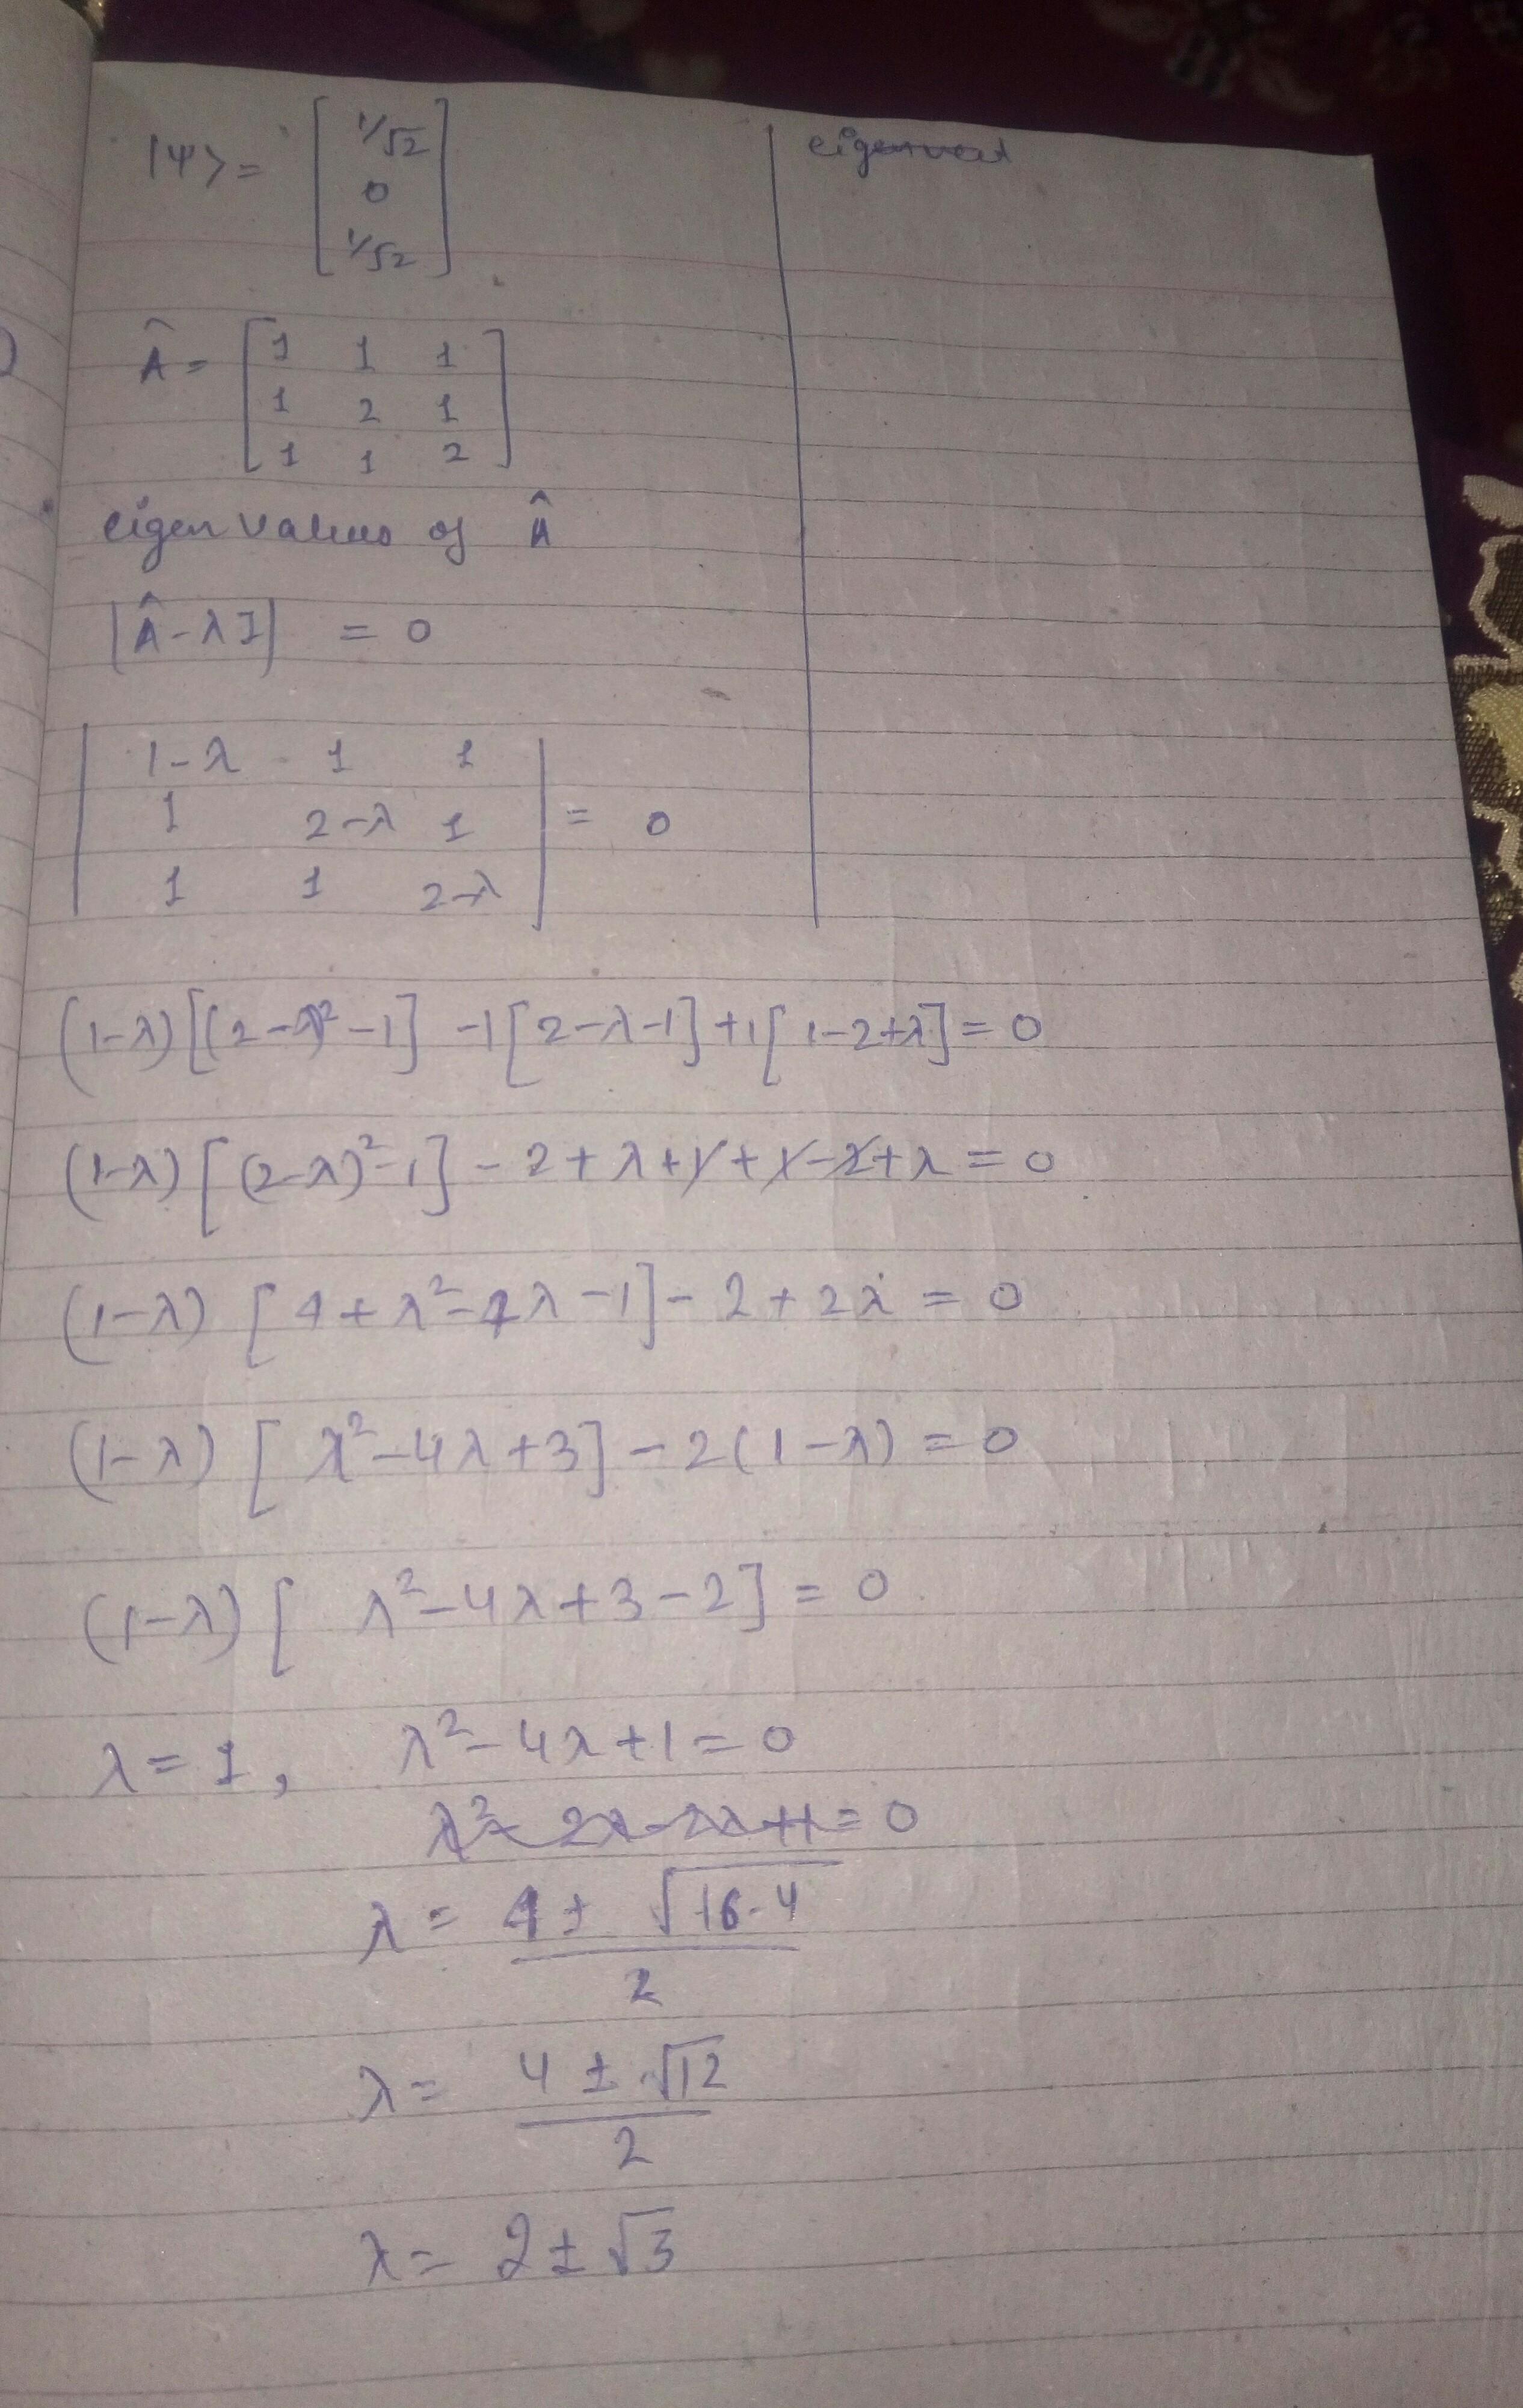 |Ψ> = [ 1/√2
0
1/√2 ]
eigenvect
Â = [ 1 1 1
1 2 1
1 1 2 ]
eigen values of Â
|Â - λI| = 0
| 1-λ 1 1
1 2-λ 1 | = 0
1 1 2-λ |
(1-λ)[(2-λ)² -1] -1[2-λ-1] +1[1-2+λ] = 0
(1-λ)[(2-λ)² -1] - 2 + λ + 1 + 1 - 2 + λ = 0
(1-λ) [4 + λ² - 4λ - 1] - 2 + 2λ = 0
(1-λ) [λ² - 4λ + 3] - 2(1-λ) = 0
(1-λ) [λ² - 4λ + 3 - 2] = 0
λ = 1, λ² - 4λ + 1 = 0
λ² - 2λ - 2λ + 1 = 0
λ = 4 ± √16-4
2
λ = 4 ± √12
2
λ = 2 ± √3